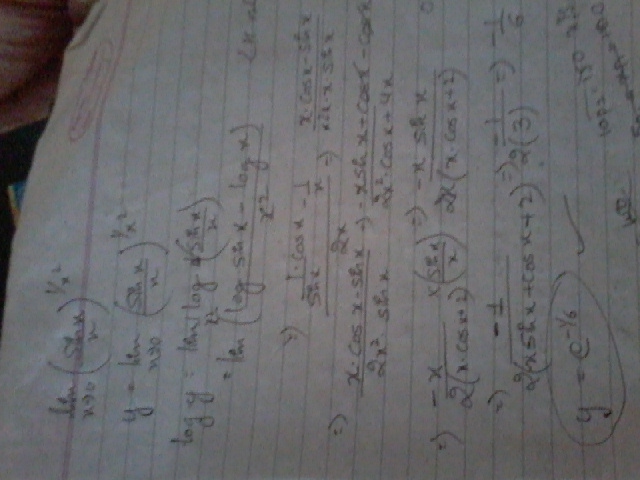 lim x→0 (sin x / x)^1/x²
y = lim x→0 (sin x / x)^1/x²
log y = lim log (sin x / x) / x²
= lim (log sin x - log x / x²)
⇒ 1/sin x · cos x - 1/x / 2x ⇒ x·cos x - sin x / x2x·x sin x
⇒ x·cos x - sin x / 2x² sin x ⇒ - x sin x + cos x - cos x / 2x²·cos x + 4x
⇒ - x / 2(x·cos x + 2) × (sin x / x) ⇒ - x sin x / 2x(x·cos x + 2)
⇒ - 1 / 2(x sin x + cos x + 2) ⇒ - 1 / 2(3) ⇒ - 1/6
y = e^-1/6